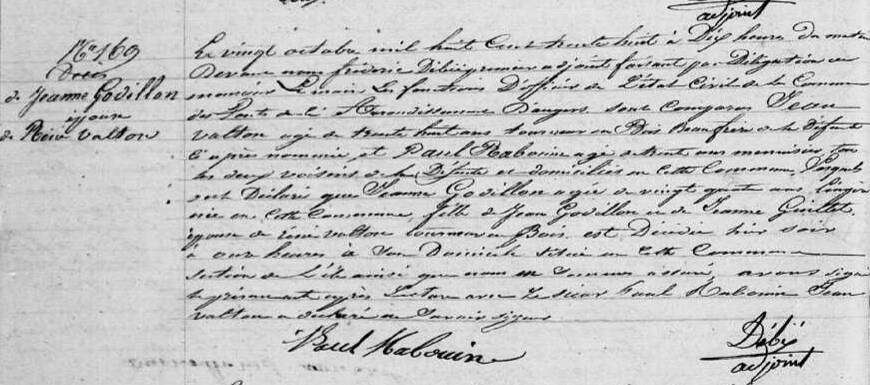 adjoint
N° 169
Décès
de Jeanne Godillon
épouse
de René Valton
Le vingt octobre mil huit Cent trente huit à Dix heures du matin
Devant nous Frédéric Débié premier adjoint faisant par Délégation de
monsieur Le maire Les fonctions D'officier de L'état Civil de la Commune
des Ponts de Cé Arrondissement D'angers sont Comparus Jean
Valton agé de trente huit ans tourneur en Bois Beaufrère de la Défunte
Ci après nommée, et Paul Rabouin agé de trente ans menuisier tous
les deux voisins de la Défunte et domiciliés en Cette Commune, Lesquels
ont Déclaré que Jeanne Godillon agée de vingt quatre ans, Lingère
née en Cette Commune, fille de Jean Godillon et de Jeanne Guillet,
épouse de René Valton tourneur en Bois est Décédée hier soir
à onze heures à Son Domicile située en Cette Commune
section de ainsi que nous nous en sommes assuré, avons signé
le présent acte après Lecture avec Le sieur Paul Rabouin Jean
Valton a déclaré ne Savoir signer
Paul Rabouin
Débié
adjoint